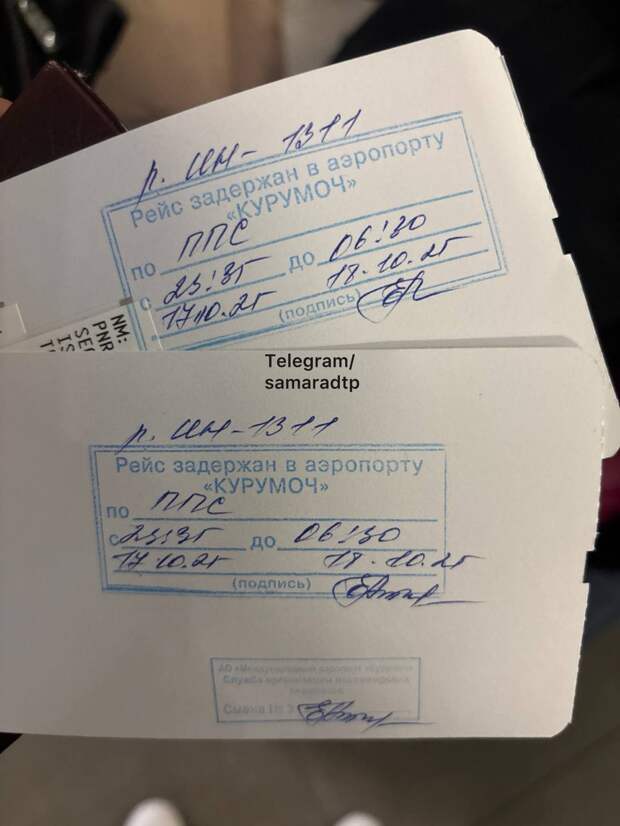 р. ИН - 1311
Рейс задержан в аэропорту
«КУРУМОЧ»
по ППС
с 23:35 до 06:30
17.10.25 18.10.25
(подпись)
NM:
PNR
Telegram/
samaradtp
р. ИН - 1311
Рейс задержан в аэропорту
«КУРУМОЧ»
по ППС
с 23:35 до 06:30
17.10.25 18.10.25
(подпись)
АО «Международный аэропорт «Курумоч»
Служба организации пассажирских
перевозок
Смена № 3